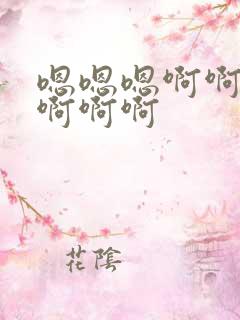 嗯嗯嗯啊啊
啊啊啊
花陰